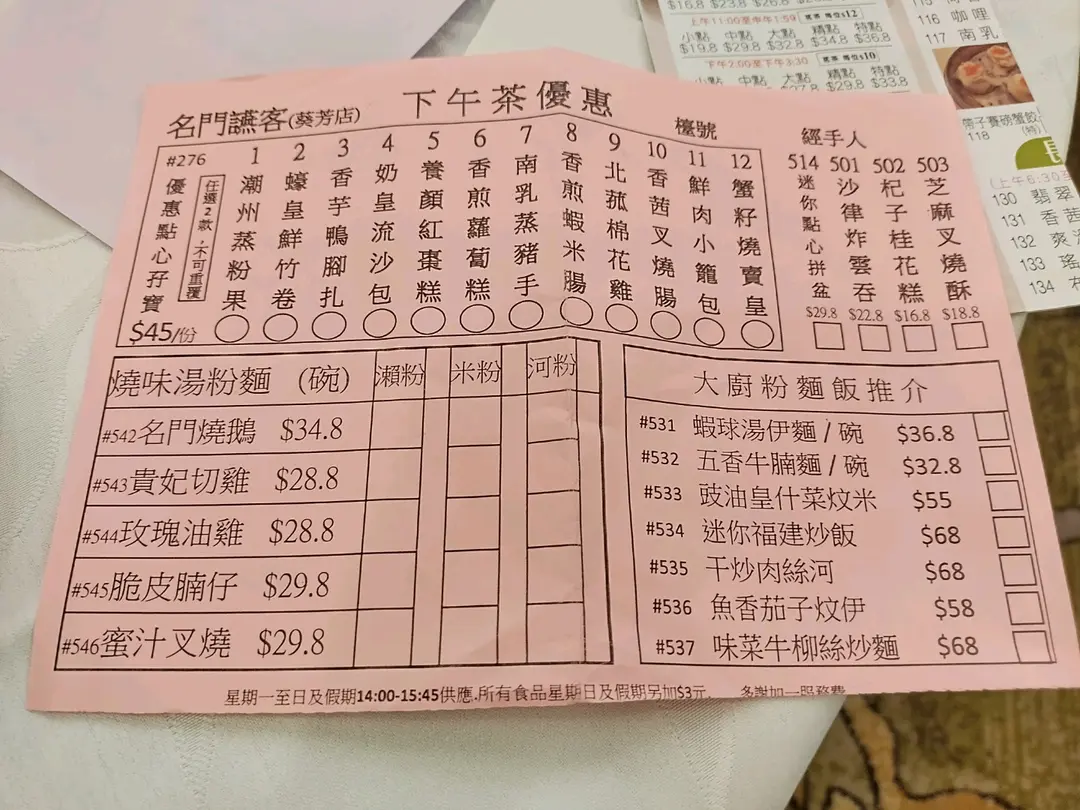 下午茶優惠
名門讌客(葵芳店)
檯號
經手人
#276
優惠點心孖寶
$45/份
任選2款，不可重覆
1 潮州蒸粉果
2 蠔皇鮮竹卷
3 香芋鴨腳扎
4 奶皇流沙包
5 養顏紅棗糕
6 香煎蘿蔔糕
7 南乳蒸豬手
8 香煎蝦米腸
9 北菰棉花雞
10 香茜叉燒腸
11 鮮肉小籠包
12 蟹籽燒賣皇
514 迷你點心拼盆 $29.8
501 沙律炸雲吞 $22.8
502 杞子桂花糕 $16.8
503 芝麻叉燒酥 $18.8
燒味湯粉麵 (碗) 瀨粉 米粉 河粉
#542名門燒鵝 $34.8
#543貴妃切雞 $28.8
#544玫瑰油雞 $28.8
#545脆皮腩仔 $29.8
#546蜜汁叉燒 $29.8
大廚粉麵飯推介
#531 蝦球湯伊麵/碗 $36.8
#532 五香牛腩麵/碗 $32.8
#533 豉油皇什菜炆米 $55
#534 迷你福建炒飯 $68
#535 干炒肉絲河 $68
#536 魚香茄子炆伊 $58
#537 味菜牛柳絲炒麵 $68
星期一至日及假期14:00-15:45供應.所有食品星期日及假期另加$3元. 多謝加一服務費
$16.8 $23.8 $26.8
上午11:00至中午1:59 $12
小點 中點 大點 精點 特點
$19.8 $29.8 $32.8 $34.8 $36.8
下午2:00至下午3:30 $10
小點 中點 大點 精點 特點
$29.8 $33.8
116 咖哩
117 南乳
帶子賽螃蟹餃
118 (特)
(上午6:30至
130 翡翠
131 香茜
132 爽
133 瑤
134